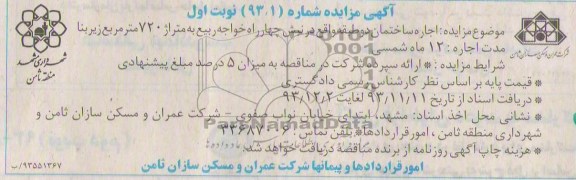 آگهی مزایده شماره (۹۳.۱) نوبت اول
موضوع مزایده: اجاره ساختمان دو طبقه واقع در نبش چهارراه خواجه ربیع به متراژ ۷۲۰ مترمربع زیربنا
مدت اجاره: ۱۲ ماه شمسی
شرایط مزایده: * ارائه سپرده شرکت در مناقصه به میزان ۵ درصد مبلغ پیشنهادی
* قیمت پایه بر اساس نظر کارشناس رسمی دادگستری
* دریافت اسناد از تاریخ ۹۳/۱۱/۱۱ لغایت ۹۳/۱۲/۲
* نشانی محل اخذ اسناد: مشهد، ابتدای خیابان نواب صفوی - شرکت عمران و مسکن سازان ثامن و
شهرداری منطقه ثامن، امور قراردادها * تلفن تماس:
* هزینه چاپ آگهی روزنامه از برنده مناقصه دریافت خواهد شد.
امور قراردادها و پیمانها شرکت عمران و مسکن سازان ثامن
۹۳۵۵۱۳۶۷/ب
شهرداری مشهد
منطقه ثامن
ParsNamadData